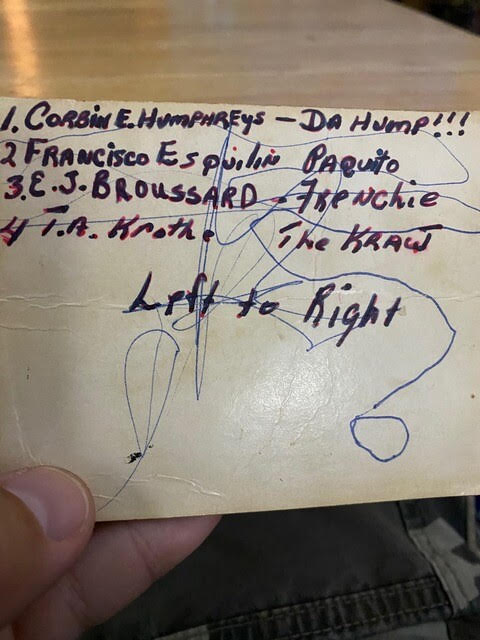 1. CORBIN E. HUMPHREYS - DA HUMP!!!
2 FRANCISCO ESQUILIN PAQUITO
3. E. J. BROUSSARD - FRENCHIE
4 T.A. Krothe The KRAUT
Left to Right